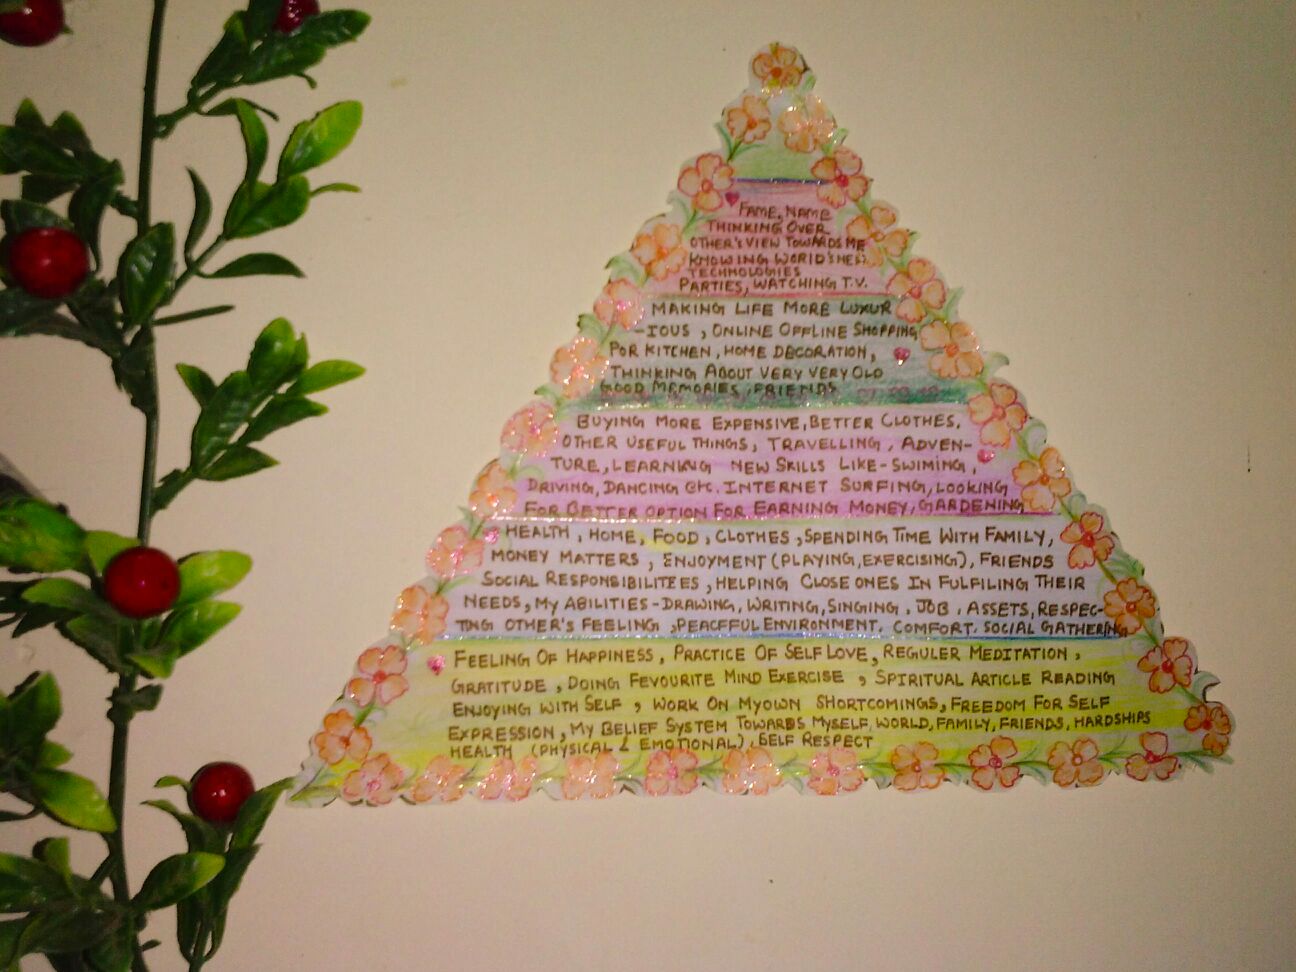 FAME, NAME
THINKING OVER
OTHER'S VIEW TOWARDS ME
KNOWING WORLD'S NEW
TECHNOLOGIES
PARTIES, WATCHING T.V.
MAKING LIFE MORE LUXUR
-IOUS, ONLINE OFFLINE SHOPPING
FOR KITCHEN, HOME DECORATION,
THINKING ABOUT VERY VERY OLD
GOOD MEMORIES, FRIENDS
BUYING MORE EXPENSIVE, BETTER CLOTHES,
OTHER USEFUL THINGS, TRAVELLING, ADVEN-
TURE, LEARNING NEW SKILLS LIKE - SWIMING,
DRIVING, DANCING etc. INTERNET SURFING, LOOKING
FOR BETTER OPTION FOR EARNING MONEY, GARDENING
HEALTH, HOME, FOOD, CLOTHES, SPENDING TIME WITH FAMILY,
MONEY MATTERS, ENJOYMENT (PLAYING, EXERCISING), FRIENDS
SOCIAL RESPONSIBILITEES, HELPING CLOSE ONES IN FULFILING THEIR
NEEDS, MY ABILITIES - DRAWING, WRITING, SINGING, JOB, ASSETS, RESPEC-
TING OTHER'S FEELING, PEACFFUL ENVIRONMENT, COMFORT, SOCIAL GATHERING
FEELING OF HAPPINESS, PRACTICE OF SELF LOVE, REGULER MEDITATION,
GRATITUDE, DOING FEVOURITE MIND EXERCISE, SPIRITUAL ARTICLE READING
ENJOYING WITH SELF, WORK ON MY OWN SHORTCOMINGS, FREEDOM FOR SELF
EXPRESSION, MY BELIEF SYSTEM TOWARDS MYSELF, WORLD, FAMILY, FRIENDS, HARDSHIPS
HEALTH (PHYSICAL & EMOTIONAL), SELF RESPECT